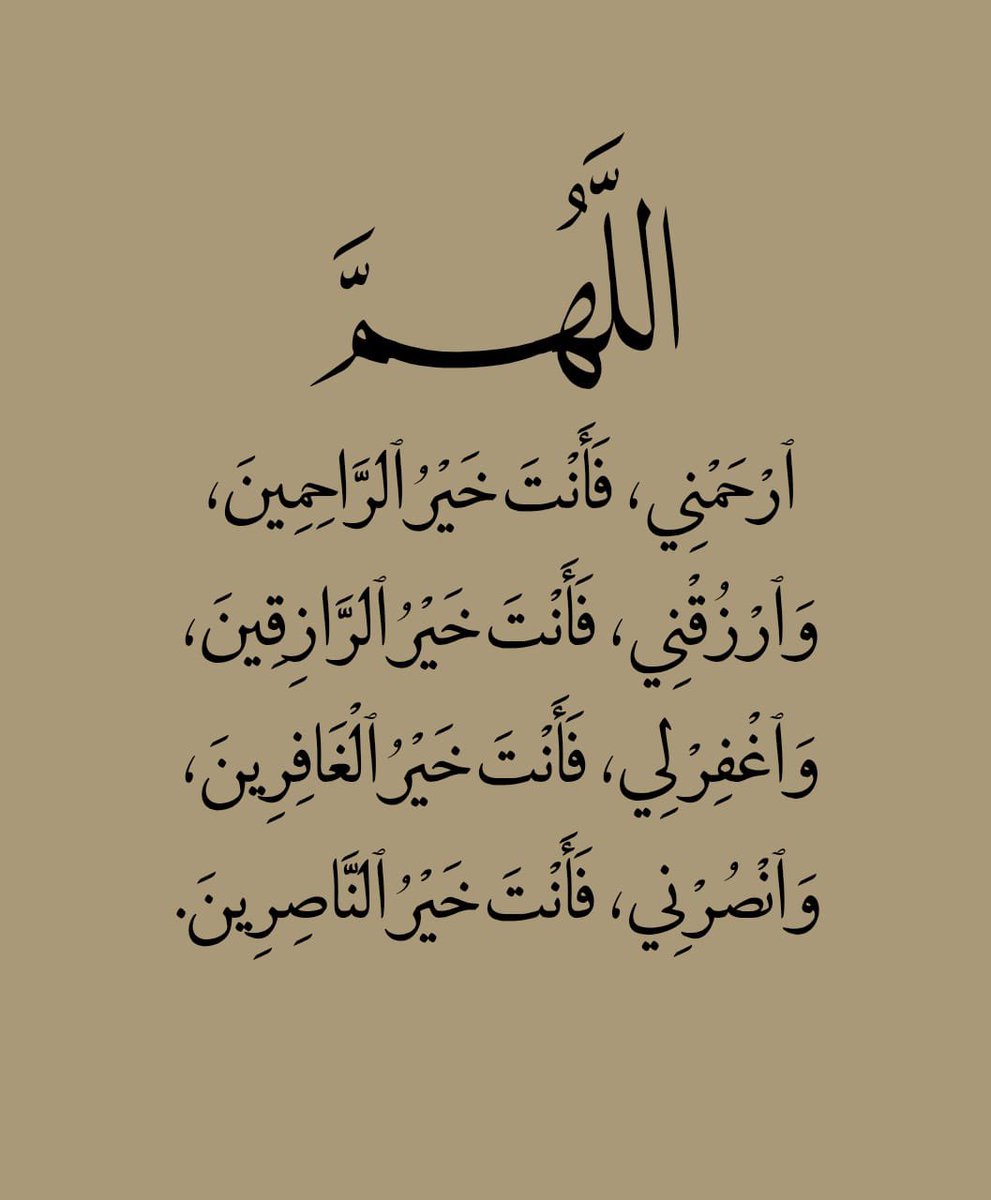 اللَّهُمَّ
ٱرْحَمْنِي، فَأَنْتَ خَيْرُ ٱلرَّاحِمِينَ،
وَٱرْزُقْنِي، فَأَنْتَ خَيْرُ ٱلرَّازِقِينَ،
وَٱغْفِرْ لِي، فَأَنْتَ خَيْرُ ٱلْغَافِرِينَ،
وَٱنْصُرْنِي، فَأَنْتَ خَيْرُ ٱلنَّاصِرِينَ.